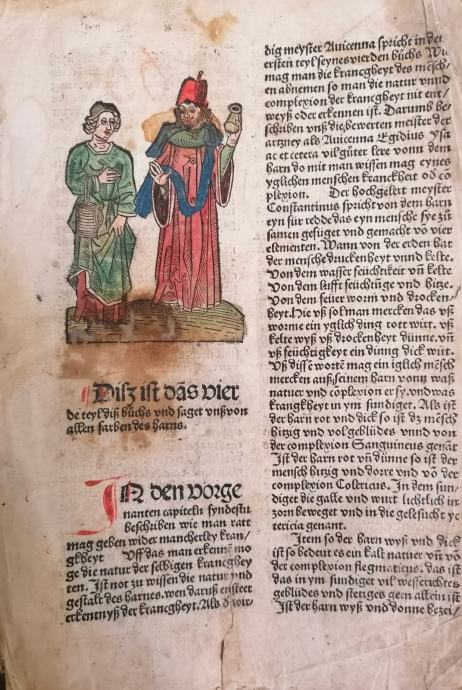 Disz ist das vier
de teyl diß büchs vnd saget vnß von
allen farben des harns.
IN den vorge
nanten capiteln syndestu
beschriben wie man ratt
mag geben wider mancherley kran/
gkheyt Vff das man erkenne mo
ge die natur der selbigen krancgheyt
ten. Ist not zu wissen die natur vnd
gestalt des harnes. wen daruß ensteet
erkentnyß der krancgheyt. Als d wir/
dig meyster Auicenna spricht in der
ersten teyl seynes vierden büchs Wu
mag man die krancgheyt des mesch/
en abnemen so man die natur vnnd
complexion der krancgheyt nit ent/
weyß oder erkennen ist. Darumb be/
schriben vnß die bewerten meister der
artzney als Auicenna Egidius Ysa
ac et cetera vil güter lere vonn dem
harn do mit man wissen mag eynes
yglichen menschen kranckheit od cō
plexion. Der hochgelert meyster
Constantinus spricht von dem harn
eyn für redde das eyn mensche sye zü
samen gefüget vnd gemacht vō vier
elementen. Wann von der erden hat
der mensche druckenheyt vnnd kelte.
Von dem wasser feüchtikeit vn̄ kelte
Von dem lufft feüchtüge vnd hitze.
Von dem feüer worm vnd drocken/
heyt. Die vß sol man mercken das vß
worme ein yglich ding rott wirt. vß
kelte wyß vß drockenheyt dünne. vn̄
vß feüchtigkeyt ein dinng dick wirt.
Vß disse wortē mag ein iglich mēsch
mercken auß seinem harn vonn waß
natuer vnd cōplexion er sy. vnd was
krangkheyt in ym sundiget. Als ist
der harn rot vnd dick so ist dz mēsch
hitzig vnd vol geblüdes vnnd von
der complexion Sanguineus genāt
Ist der harn rot vn̄ dünne so ist der
mensch hitzig vnd dorre vnd vō der
complexion Colericus. In dem sun/
diget die galle vnd wurt lichtlich in
zorn beweget vnd in die gelesucht yc
tericia genant.
Item so der harn wyß vnd dick
ist so bedeut es ein kalt natuer vn̄ vō
der complexion flegmaticus. das ist
das in ym sundiget vil wesserichtes
geblüdes vnd stetiges gern allein ist
Ist der harn wyß vnd donne bezei/